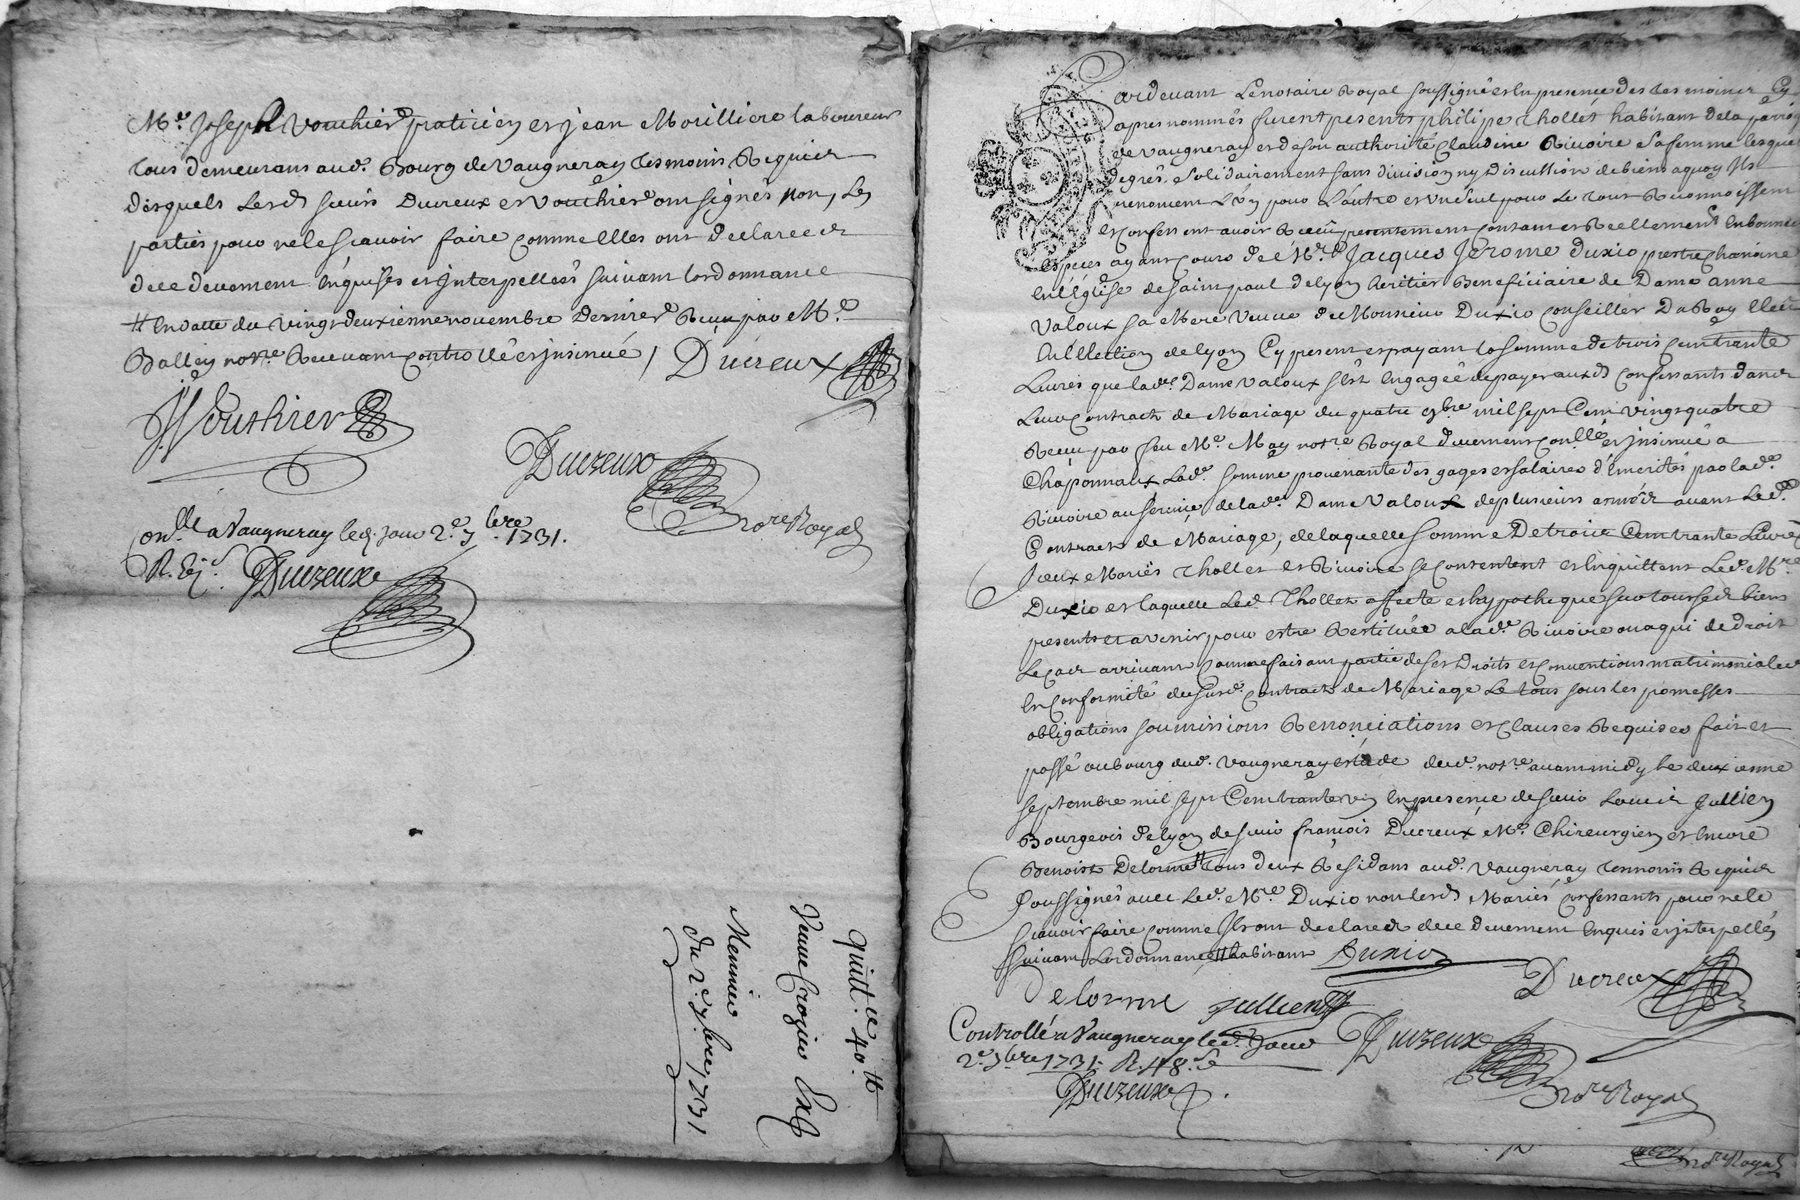 Me. Joseph Vouthier praticien et jean Morilliere laboureur
tous demeurans aud. Bourg de Vaugneray tesmoins Requis
desquels lesd. sieurs Ducreux et Vouthier ont signés non, les
parties pour ne le scavoir faire comme elles ont declarée et
de ce deuement enquises et jnterpellées suivant lordonnance
# En datte du vingt deuxieme novembre dernier Receu par Me.
Balley notre. Recevant controllé et jnsinué / Ducreux
Vouthier
Ducreux
no.re Royal
Con.llé a Vaugneray led. jour 2.e 7.bre 1731.
Ducreux
quitt.ce 40.#
Veuve Crozier
Meunier
du 2.e 7.bre 1731
Pardevant Le notaire Royal soussigné et en presence des tesmoins Cy
apres nommés furent presents philipe Thollet habitant de la parroi
de Vaugneray et de son authorité Claudine Rivoire sa femme lesquels
degrés solidairement sans division ny discution de biens a quoy Ils
renoncent L'un pour L'autre et un seul pour Le tout Reconnoissent
et confessent avoir Receu presentement contant et Reellement en bonnes
especes ayant cours de Me. Jacques Jerome Duxio prestre chanoine
en L'Eglise de saint paul de lyon heritier Beneficiaire de Dame anne
Valoux sa Mere veuve de Monsieur Duxio Conseiller Du Roy Elect
En l'Election de lyon Cy present et payant La somme de trois cent trante
Livres que lad. Dame Valoux s'est Engagée de payer auxd. confessants dans
Leur contract de Mariage du quatre 9bre mil sept Cent vingt quatre
Receu par feu Me. May notre. Royal duement con.llé et jnsinué a
Chaponnaux Lade. somme provenante des gages et salaires d'emerités par lade.
Rivoire au service de lade. Dame Valoux de plusieurs années avant Led.
Contract de Mariage, de laquelle somme De trois Cent trante Livres
Iceux Mariés Thollet et Rivoire se contentent et En quittent Led. Mre
Duxio et laquelle Led. Thollet affecte et hypotheque sur tous sesd. biens
presents et avenir pour estre Restituée a lade. Rivoire ou a qui de droit
Le cas arrivant comme faisant partie de ses Droits et conventions matrimoniales
En conformité dud. sd. contract de Mariage Le tous sous les promesses
obligations soumissions Renonciations et clauses Requises fait et
passé au bourg dud. Vaugneray étude dud. notre. avant midy Le deuxieme
septembre mil sept Cent trante un En presence de sieur Louis Jullien
Bourgeois de lyon de sieur françois Ducreux Me. Chirurgien et Encore
Benoist Delorme # tous deux Residans aud. Vaugneray tesmoins Requis
soussignés avec Led. Mre Duxio non lesd. Mariés Confessants pour ne le
scavoir faire comme Ils ont declarés de ce deuement Enquis et jnterpellés
suivant Lordonnance # habitant Duxio
Delorme Jullien Ducreux
Controllé a Vaugneray led. jour
2.e 7bre 1731. R.
Ducreux
no.re Royal
Ducreux
no.re Royal